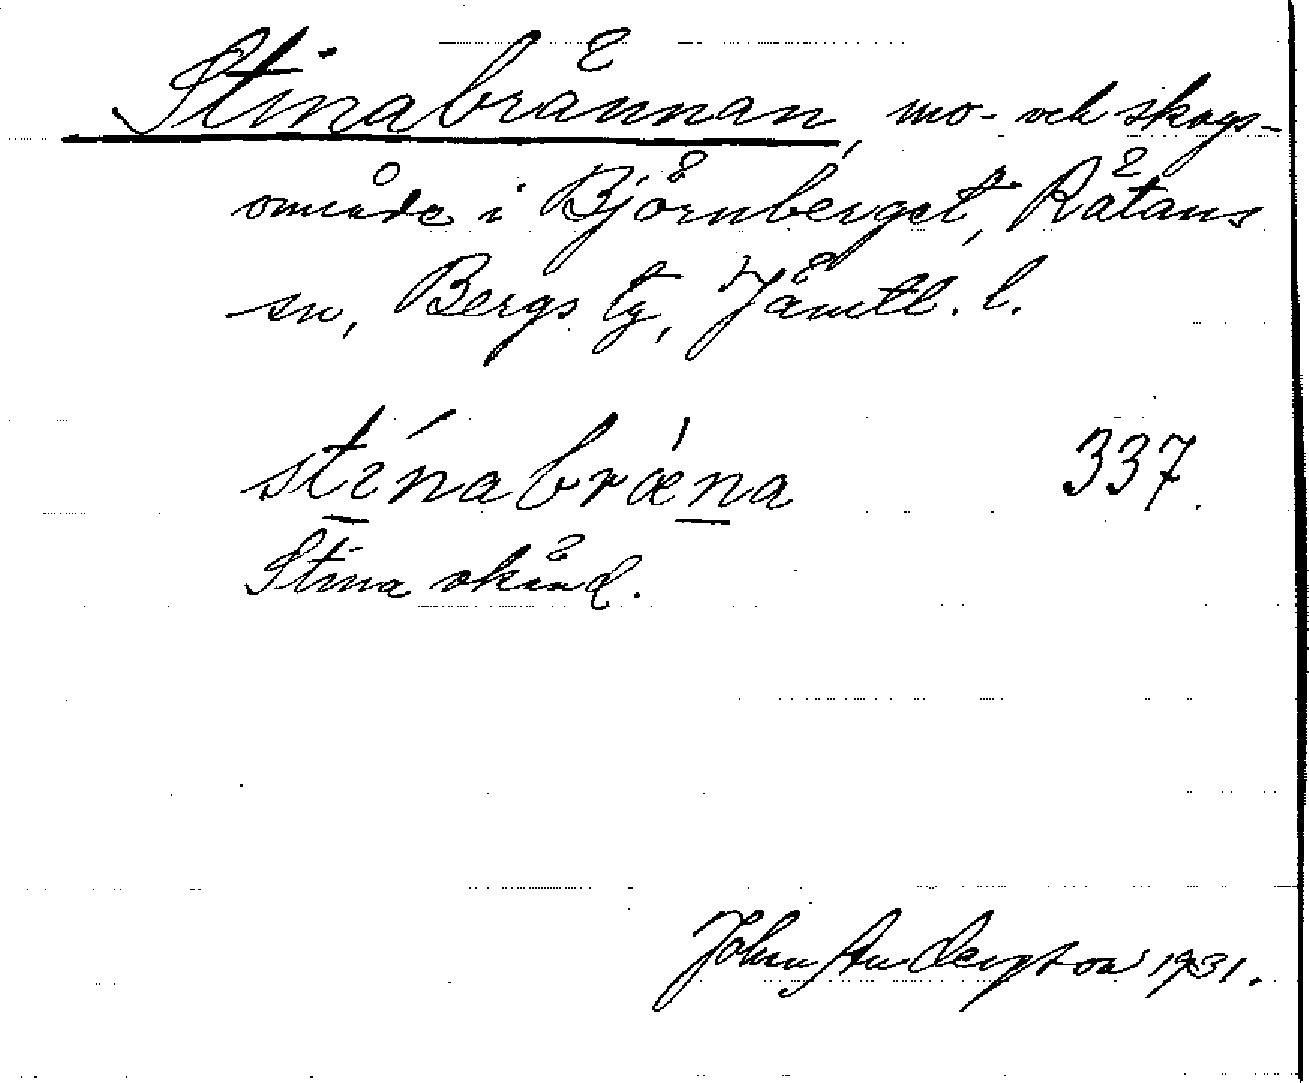 Stinabrännan, mo- och skogs-
område i Björnberget, Rätans
sn, Bergs tg, Jämtl. l.
stínabræ̍na 337.
Stina okänd.
John Andersson 1931.